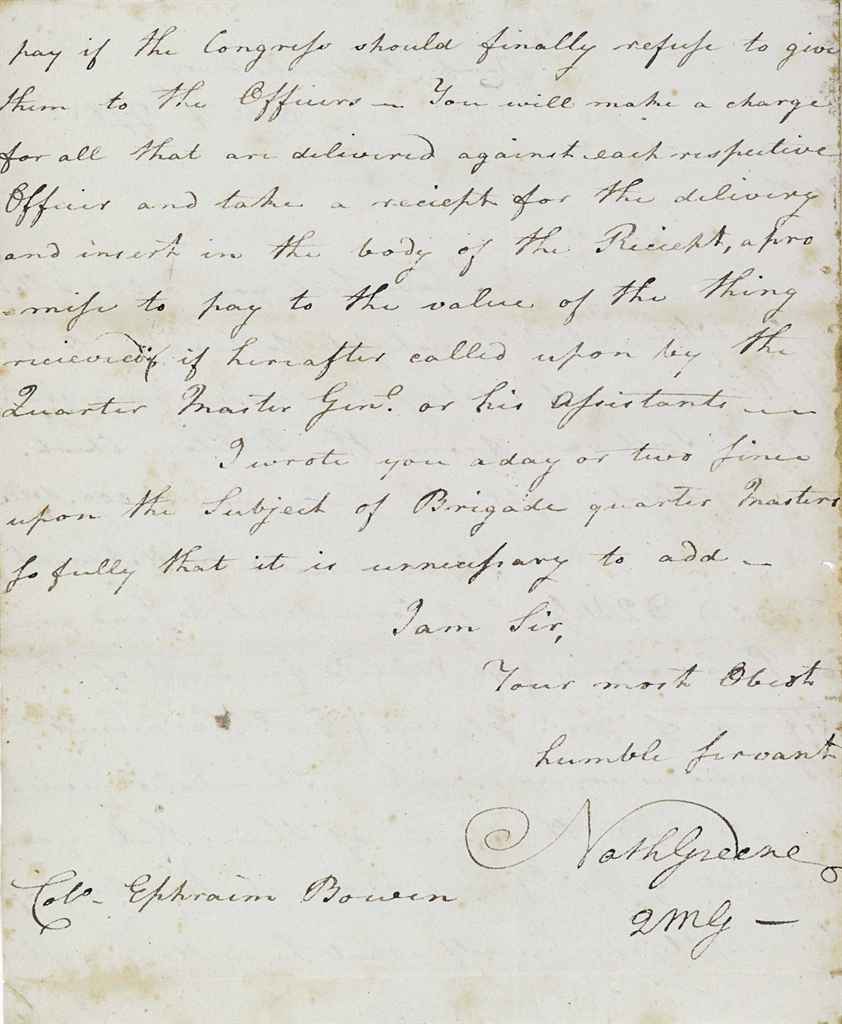 pay if the Congress should finally refuse to give
them to the Officers — You will make a charge
for all that are delivered against each respective
Officer and take a reciept for the delivery
and insert in the body of the Reciept, a pro
-mise to pay to the value of the thing
recieved if hereafter called upon by the
Quarter Master Genl. or his Assistants —
I wrote you a day or two since
upon the Subject of Brigade quarter Masters
so fully that it is unnecessary to add —
I am Sir,
Your most Obedt
humble servant
Nath Greene
QMG —
Colo. Ephraim Bowen